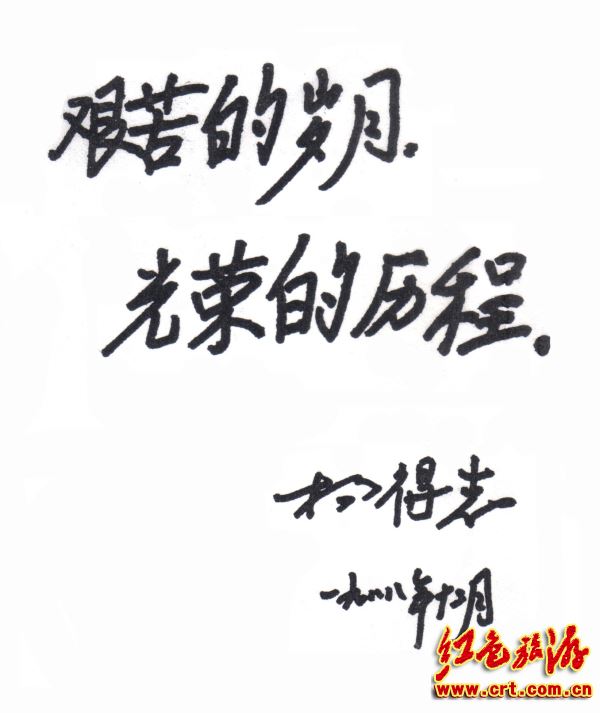 艰苦的岁月.
光荣的历程.
杨得志
一九八八年十二月
红色旅游
www.crt.com.cn